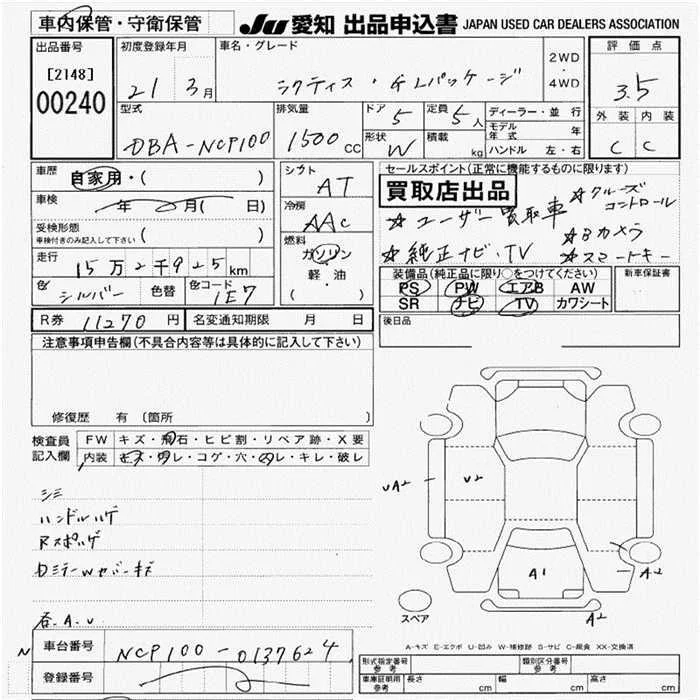 車内保管・守衛保管
JU 愛知 出品申込書 JAPAN USED CAR DEALERS ASSOCIATION
出品番号
[2148]
00240
初度登録年月
21 3月
車名・グレード
ラクティス・GLパッケージ
2WD
・
4WD
評価点
3.5
外装 内装
C C
型式
DBA-NCP100
排気量
1500 CC
ドア 5
形状 W
定員 5人
積載 kg
ディーラー・並行
モデル年式 年
ハンドル 左・右
車歴 自家用・( )
車検 年 月( 日)
受検形態
車検付きのみ記入して下さい ( )
走行 15万2千925km
色 シルバー 色替 色コード 1E7
シフト AT
冷房 AAC
燃料
ガソリン
軽・油
( )
セールスポイント(正常に機能するものに限ります)
買取店出品
☆クルーズコントロール
☆ユーザー買取車
☆Bカメラ
☆純正ナビ・TV
☆スマートキー
装備品(純正品に限り○をつけてください)
PS PW エアB AW
SR ナビ TV カワシート
新車保証書
R券 11270円 名変通知期限 月 日
後日品
注意事項申告欄(不具合内容等は具体的に記入して下さい)
修復歴 有 (箇所
検査員記入欄
FW キズ・飛石・ヒビ割・リペア跡・X要
内装 キズ・汚レ・コゲ・穴・スレ・キレ・破レ
シミ
ハンドルハゲ
Rスポハゲ
DミラーWカバーキズ
各.A.U
UA2
U2
A1
A2
A2
スペア
A-キズ E-エクボ U-凹み W-補修跡 S-サビ C-腐食 XX-交換済
N
車台番号 NCP100-0137624
登録番号
形式指定番号 参考
類別区分番号 参考
車庫証明用 参考 長さ cm 幅 cm 高さ cm